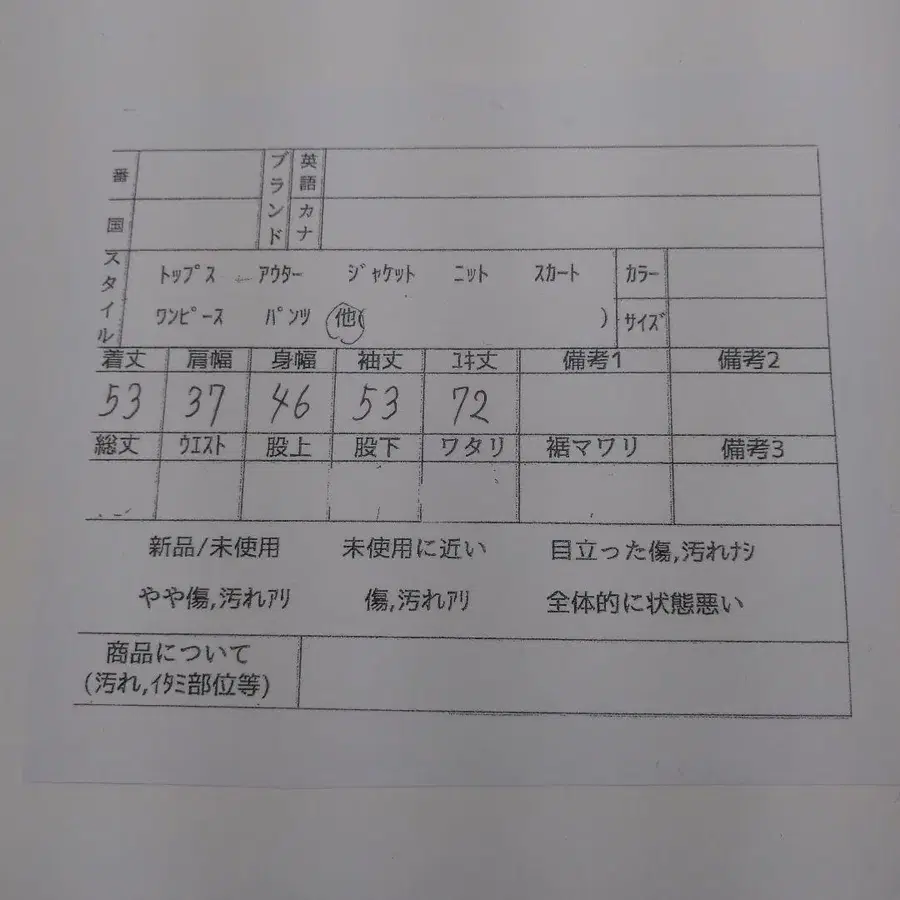 番 ブランド 英語
国 カナ
スタイル ﾄｯﾌﾟｽ ｱｳﾀｰ ｼﾞｬｹｯﾄ ﾆｯﾄ ｽｶｰﾄ ｶﾗｰ
ﾜﾝﾋﾟｰｽ ﾊﾟﾝﾂ 他( ) ｻｲｽﾞ
着丈 肩幅 身幅 袖丈 ﾕｷ丈 備考1 備考2
53 37 46 53 72
総丈 ｳｴｽﾄ 股上 股下 ワタリ 裾マワリ 備考3
新品/未使用 未使用に近い 目立った傷,汚れﾅｼ
やや傷,汚れｱﾘ 傷,汚れｱﾘ 全体的に状態悪い
商品について
(汚れ,ｲﾀﾐ部位等)